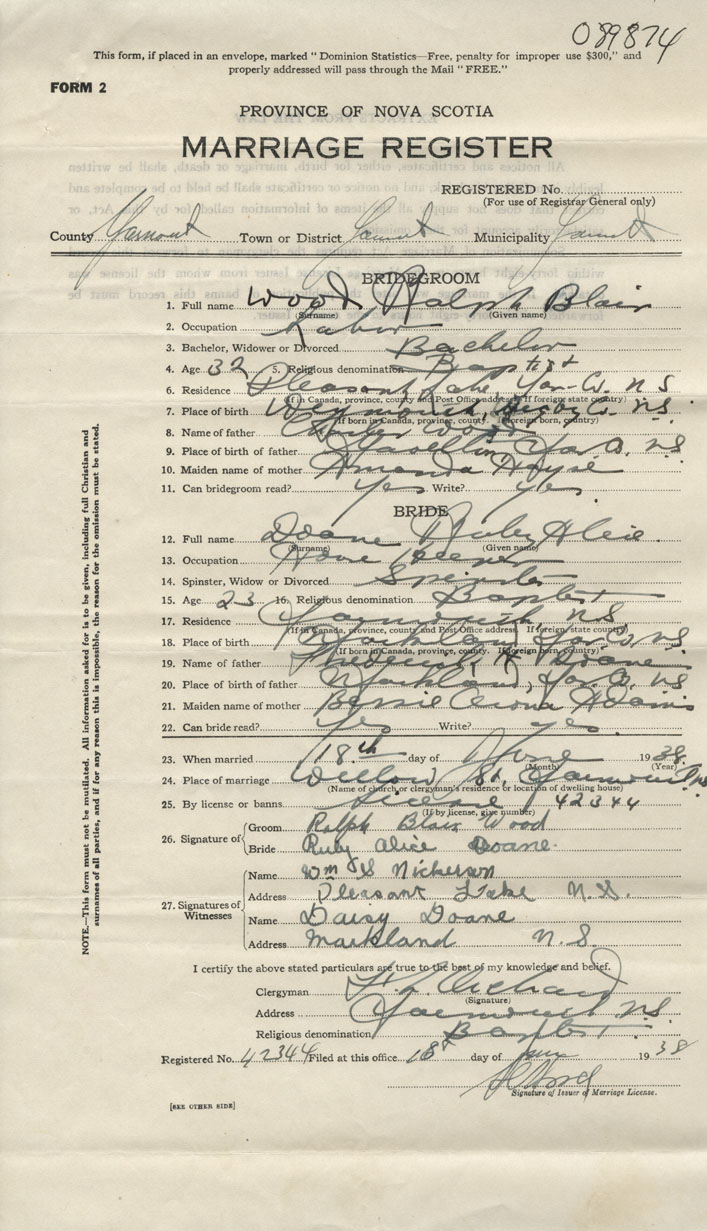 089874
This form, if placed in an envelope, marked "Dominion Statistics—Free, penalty for improper use $300," and
properly addressed will pass through the Mail "FREE."
FORM 2
PROVINCE OF NOVA SCOTIA
MARRIAGE REGISTER
REGISTERED No.
(For use of Registrar General only)
County Yarmouth Town or District Yarmouth Municipality Yarmouth
BRIDEGROOM
1. Full name Wood Ralph Blair
(Surname) (Given name)
2. Occupation Labor
3. Bachelor, Widower or Divorced Bachelor
4. Age 32 5. Religious denomination Baptist
6. Residence Pleasant Lake, Yar. Co. N S
(If in Canada, province, county and Post Office address. If foreign, state country)
7. Place of birth Weymouth, Digby Co. N.S.
(If born in Canada, province, county. If foreign born, country)
8. Name of father Charles Wood
9. Place of birth of father Yar Co. N S
10. Maiden name of mother Amanda
11. Can bridegroom read? Yes Write? Yes
BRIDE
12. Full name Doane Ruby Alice
(Surname) (Given name)
13. Occupation Home Keeper
14. Spinster, Widow or Divorced Spinster
15. Age 23 16. Religious denomination Baptist
17. Residence Yarmouth N S
(If in Canada, province, county and Post Office address. If foreign, state country)
18. Place of birth Markland Yar Co N S
(If born in Canada, province, county. If foreign born, country)
19. Name of father Frederick Doane
20. Place of birth of father Markland, Yar. Co. N S
21. Maiden name of mother Bessie Adams
22. Can bride read? Yes Write? Yes.
23. When married 18th day of June 1938
(Month) (Year)
24. Place of marriage Willow St. Yarmouth NS
(Name of church or clergyman's residence or location of dwelling house)
25. By license or banns License 42344
(If by license, give number)
26. Signature of
Groom Ralph Blair Wood
Bride Ruby Alice Doane.
27. Signatures of Witnesses
Name Wm S Nickerson
Address Pleasant Lake N.S.
Name Daisy Doane
Address Markland N.S.
I certify the above stated particulars are true to the best of my knowledge and belief.
Clergyman
(Signature)
Address Yarmouth N.S.
Religious denomination Baptist
Registered No. 42344 Filed at this office 18 day of June 1938
Signature of Issuer of Marriage License.
[SEE OTHER SIDE]
NOTE.—This form must not be mutilated. All information asked for is to be given, including full Christian and
surnames of all parties, and if for any reason this is impossible, the reason for the omission must be stated.